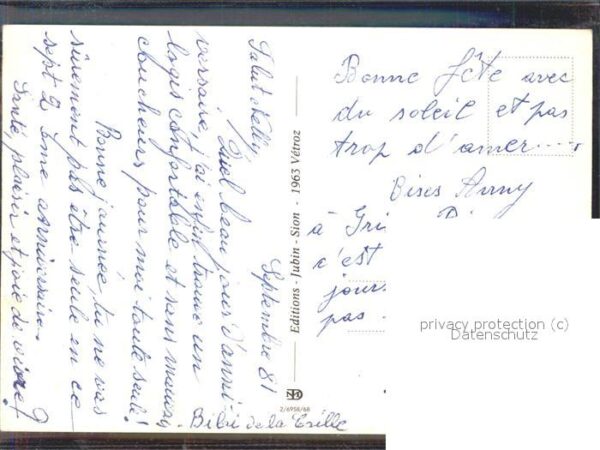 Septembre 81
Salut Nelly
Quel beau jour d'anni-
versaire, j'ai enfin trouvé un
logis confortable et sans mauvais
coucheurs pour moi toute seule!
Bonne journée, tu ne vas
sûrement pas être seule en ce
sept 2 ème anniversaire.
Santé, plaisir et joie de vivre!
Bibi de la
Editions - Jubin - Sion - 1963 Vétroz
2/6958/68
Bonne fête avec
du soleil et pas
trop d'amer....
Bises Anny
à
c'est
jours
pas
privacy protection (c)
Datenschutz